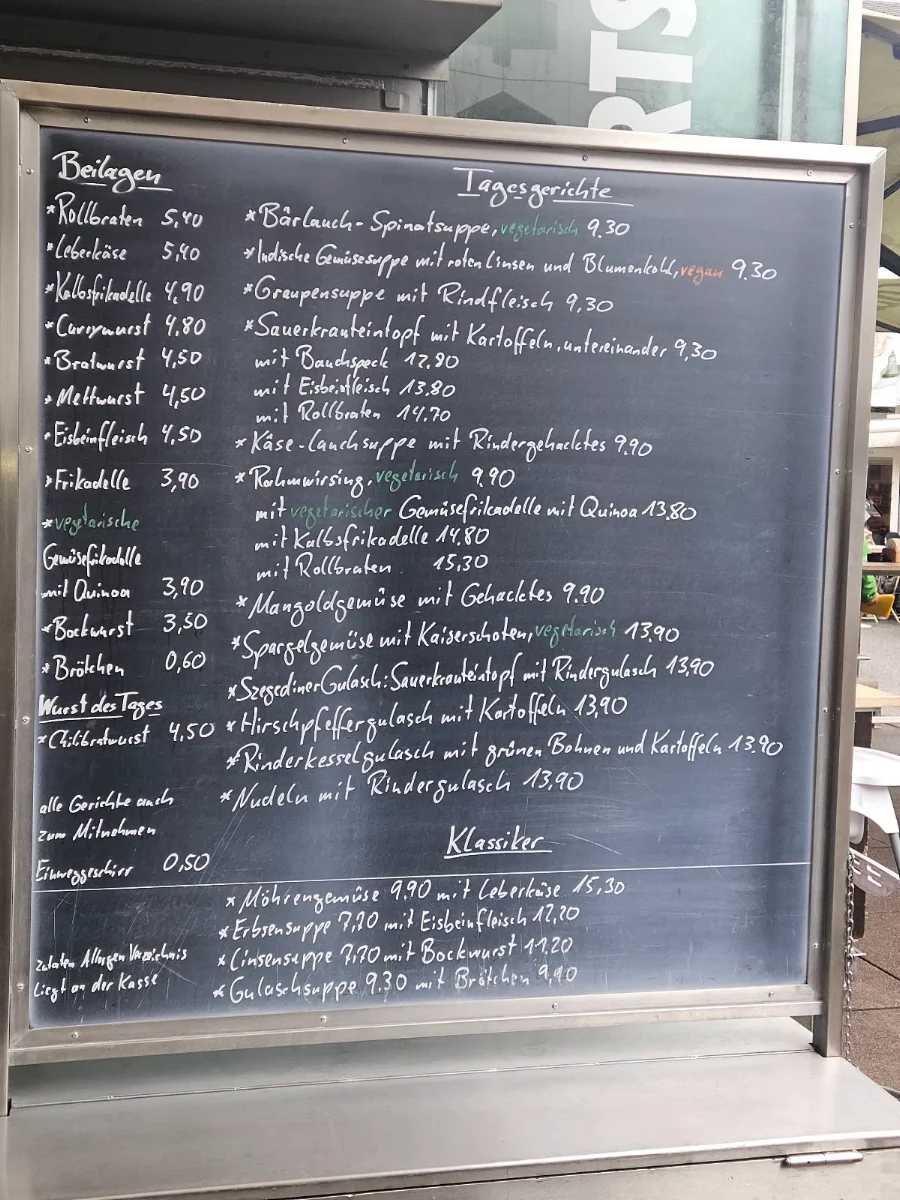 RTS
Beilagen
*Rollbraten 5,40
*Leberkäse 5,40
*Kalbsfrikadelle 4,90
*Currywurst 4,80
*Bratwurst 4,50
*Mettwurst 4,50
*Eisbeinfleisch 4,50
*Frikadelle 3,90
*vegetarische
Gemüsefrikadelle
mit Quinoa 3,90
*Bockwurst 3,50
*Brötchen 0,60
Wurst des Tages
*Chilibratwurst 4,50
alle Gerichte auch
zum Mitnehmen
Einweggeschirr 0,50
Zutaten Allergen Verzeichnis
liegt an der Kasse
Tagesgerichte
*Bärlauch-Spinatsuppe, vegetarisch 9.30
*Indische Gemüsesuppe mit roten Linsen und Blumenkohl, vegan 9.30
*Graupensuppe mit Rindfleisch 9,30
*Sauerkrauteintopf mit Kartoffeln, untereinander 9,30
mit Bauchspeck 12,80
mit Eisbeinfleisch 13,80
mit Rollbraten 14,70
*Käse-Lauchsuppe mit Rindergehacktes 9.90
*Rahmwirsing, vegetarisch 9,90
mit vegetarischer Gemüsefrikadelle mit Quinoa 13,80
mit Kalbsfrikadelle 14,80
mit Rollbraten 15,30
*Mangoldgemüse mit Gehacktes 9.90
*Spargelgemüse mit Kaiserschoten, vegetarisch 13,90
*Szegediner Gulasch: Sauerkrauteintopf mit Rindergulasch 13,90
*Hirschpfeffergulasch mit Kartoffeln 13,90
*Rinderkesselgulasch mit grünen Bohnen und Kartoffeln 13.90
*Nudeln mit Rindergulasch 13,90
Klassiker
*Möhrengemüse 9,90 mit Leberkäse 15,30
*Erbsensuppe 7,70 mit Eisbeinfleisch 12,20
*Linsensuppe 7,70 mit Bockwurst 11,20
*Gulaschsuppe 9.30 mit Brötchen 9,90